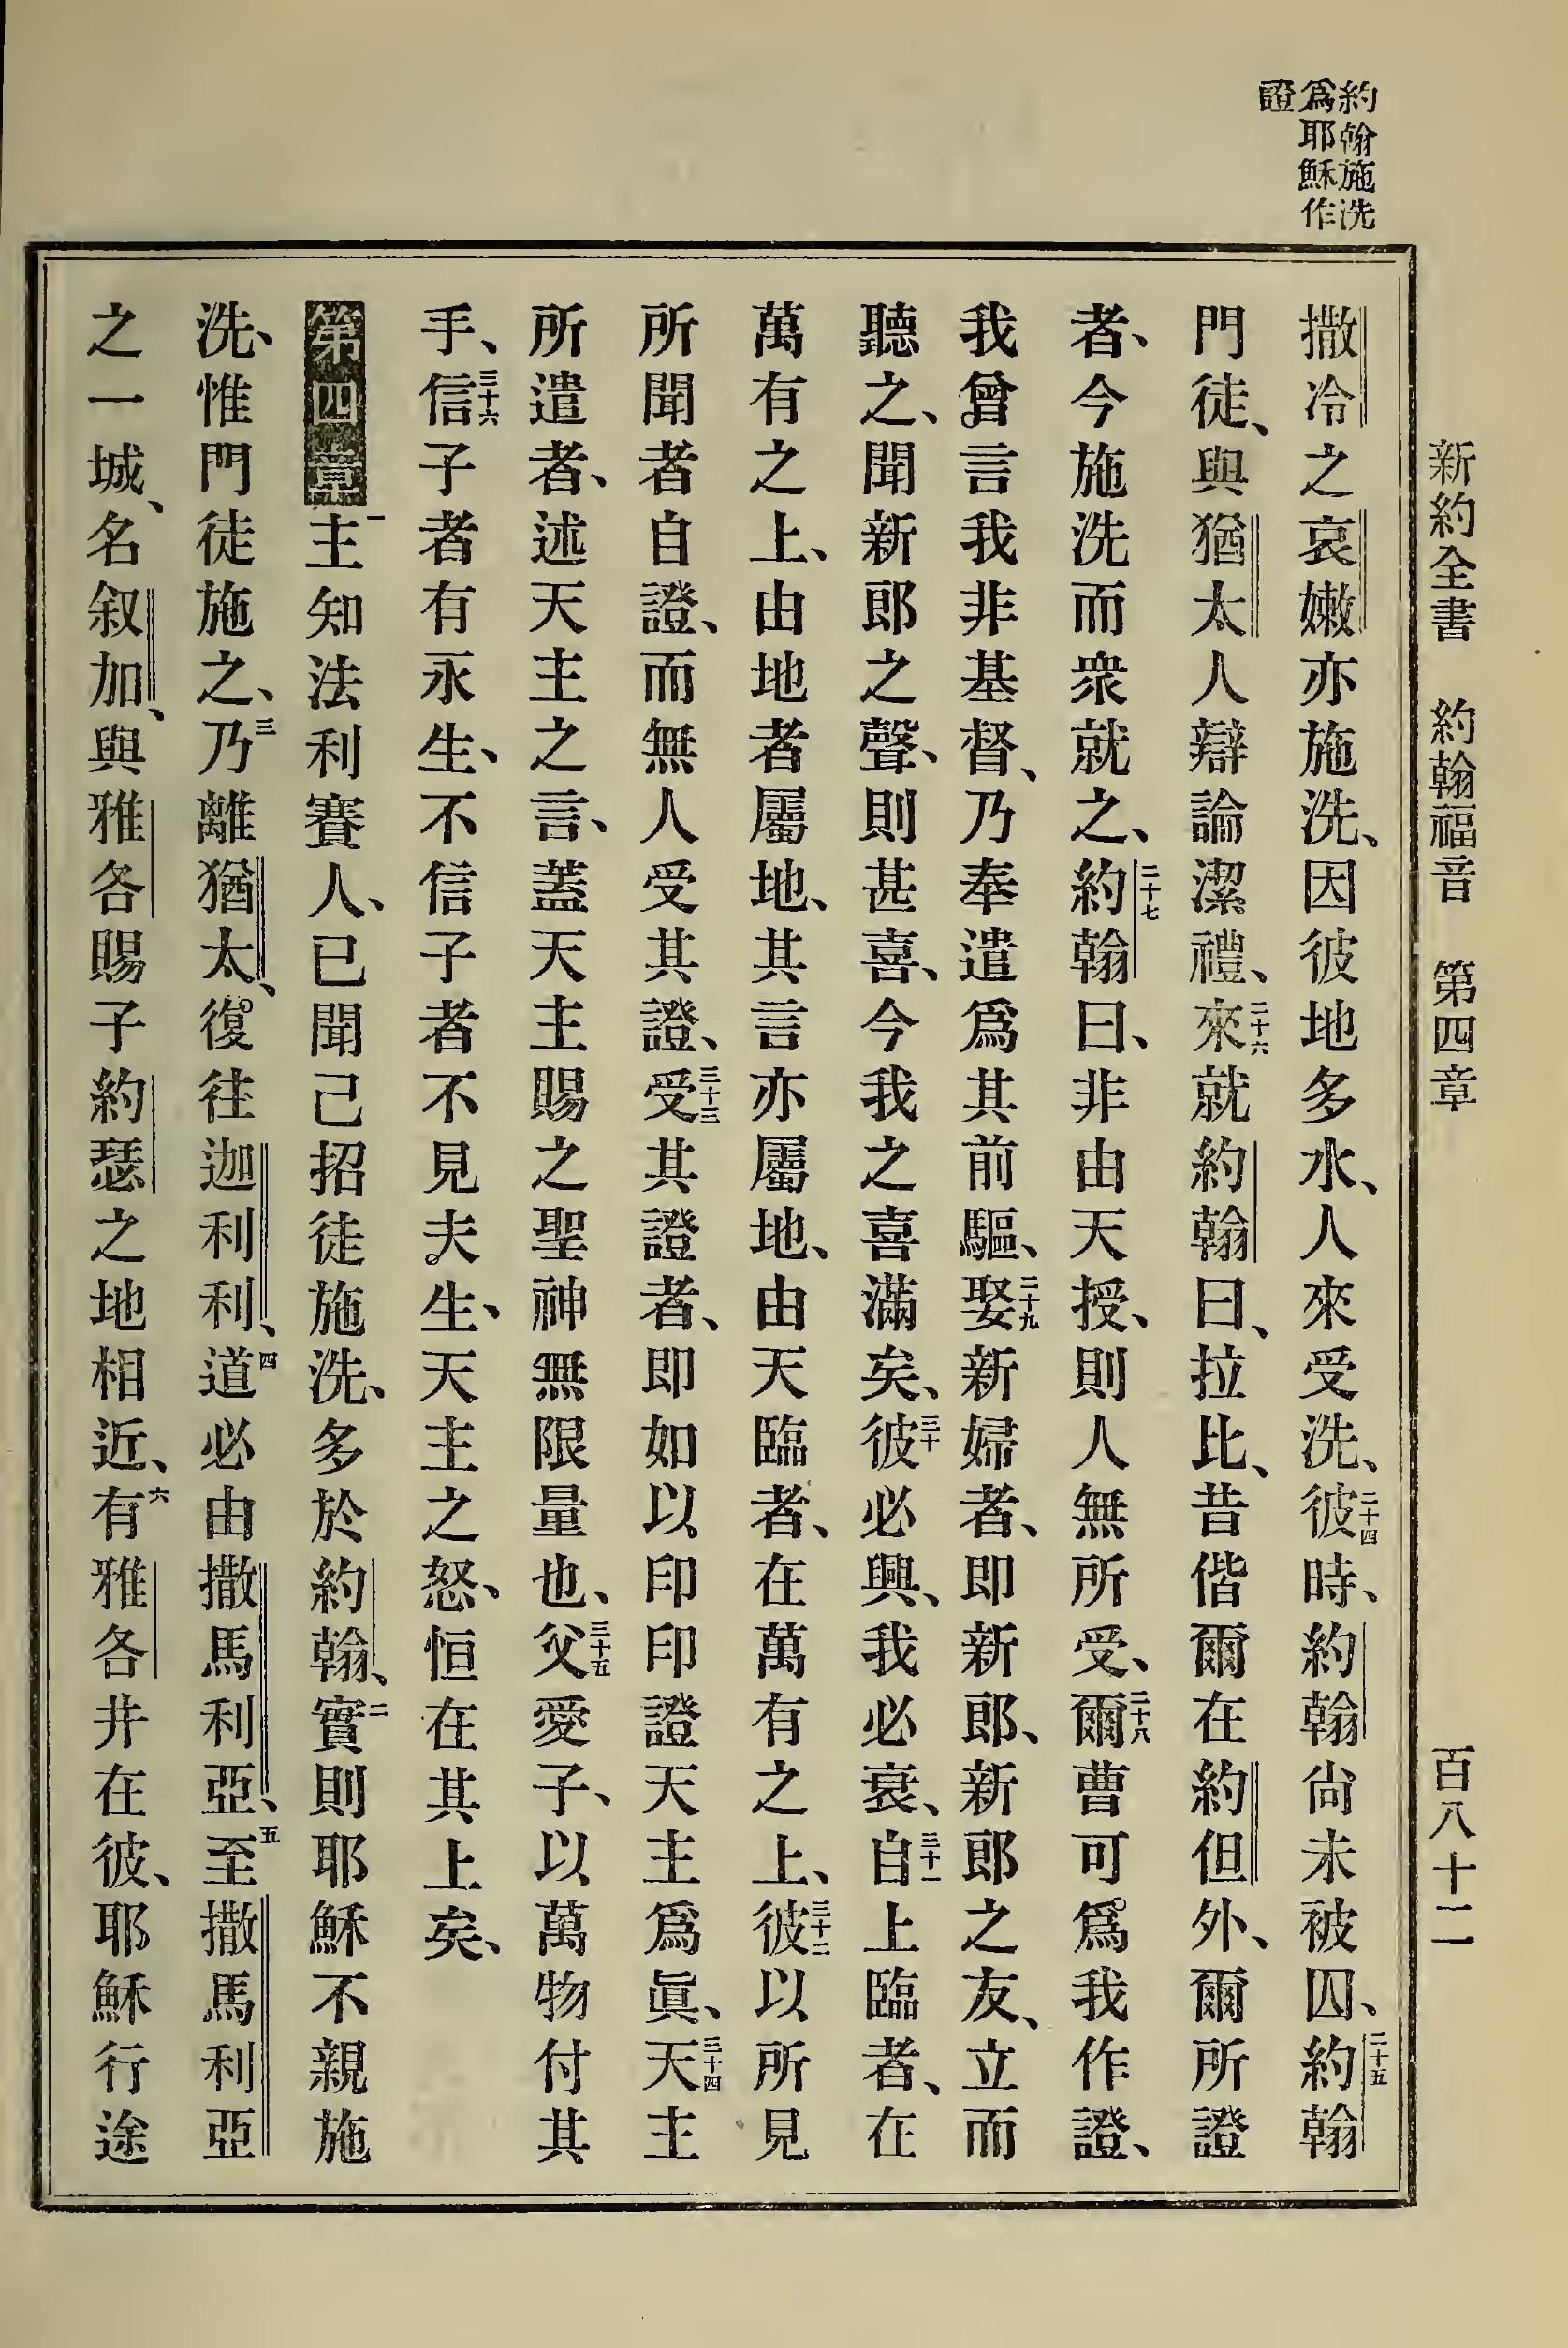 新約全書 約翰福音 第四章 百八十二
約翰施洗
爲耶穌作
證
撒冷之哀嫩亦施洗、因彼地多水、人來受洗、二十四彼時、約翰尙未被囚、二十五約翰
門徒、與猶太人辯論潔禮、二十六來就約翰曰、拉比、昔偕爾在約但外、爾所證
者、今施洗而衆就之、二十七約翰曰、非由天授、則人無所受、二十八爾曹可爲我作證、
我曾言我非基督、乃奉遣爲其前驅、二十九娶新婦者、即新郎、新郎之友、立而
聽之、聞新郎之聲、則甚喜、今我之喜滿矣、三十彼必興、我必衰、三十一自上臨者、在
萬有之上、由地者屬地、其言亦屬地、由天臨者、在萬有之上、三十二彼以所見
所聞者自證、而無人受其證、三十三受其證者、即如以印印證天主爲眞、三十四天主
所遣者、述天主之言、蓋天主賜之聖神無限量也、三十五父愛子、以萬物付其
手、三十六信子者有永生、不信子者不見夫生、天主之怒、恒在其上矣、
第四章 一主知法利賽人、已聞己招徒施洗、多於約翰、二實則耶穌不親施
洗、惟門徒施之、三乃離猶太、復往迦利利、四道必由撒馬利亞、五至撒馬利亞
之一城、名叙加、與雅各賜子約瑟之地相近、六有雅各井在彼、耶穌行途